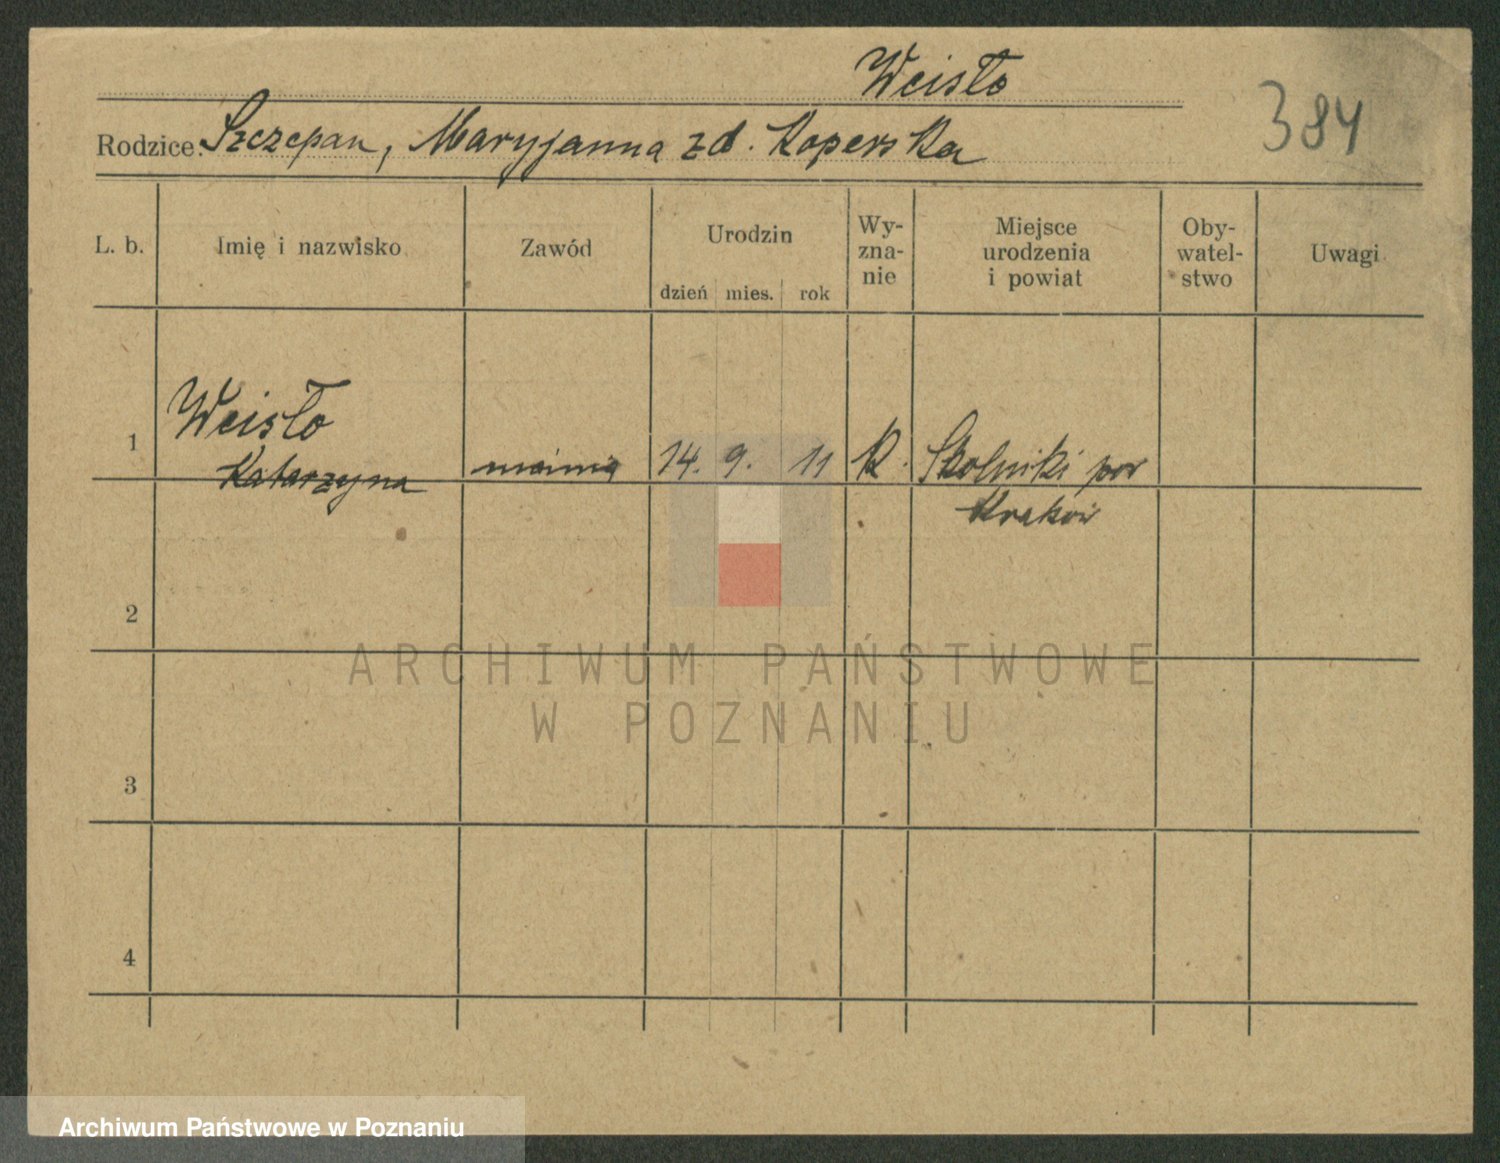 Weisło
384
Rodzice: Szczepan, Maryjanna zd. Koperska
L. b.
Imię i nazwisko
Zawód
Urodzin
dzień mies. rok
Wy-
zna-
nie
Miejsce
urodzenia
i powiat
Oby-
watel-
stwo
Uwagi
1
Weisło
Katarzyna
14. 9. 11
K.
Skolniki pow
Kraków
2
3
4
ARCHIWUM PAŃSTWOWE
W POZNANIU
Archiwum Państwowe w Poznaniu